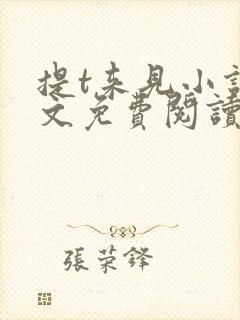 提t来見小説
文免費閱讀
張荣鋒